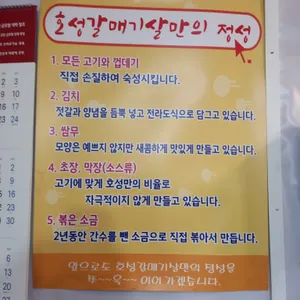 호성갈매기살만의 정성
1. 모든 고기와 껍데기
직접 손질하여 숙성시킵니다.
2. 김치
젓갈과 양념을 듬뿍 넣고 전라도식으로 담그고 있습니다.
3. 쌈무
모양은 예쁘지 않지만 새콤하게 맛있게 만들고 있습니다.
4. 초장, 막장(소스류)
고기에 맞게 호성만의 비율로
자극적이지 않게 만들고 있습니다.
5. 볶은 소금
2년동안 간수를 뺀 소금으로 직접 볶아서 만듭니다.
앞으로도 호성갈매기살만의 정성을
쭈~욱~ 이어 가겠습니다.
2
3
9
10
16
17
23
24